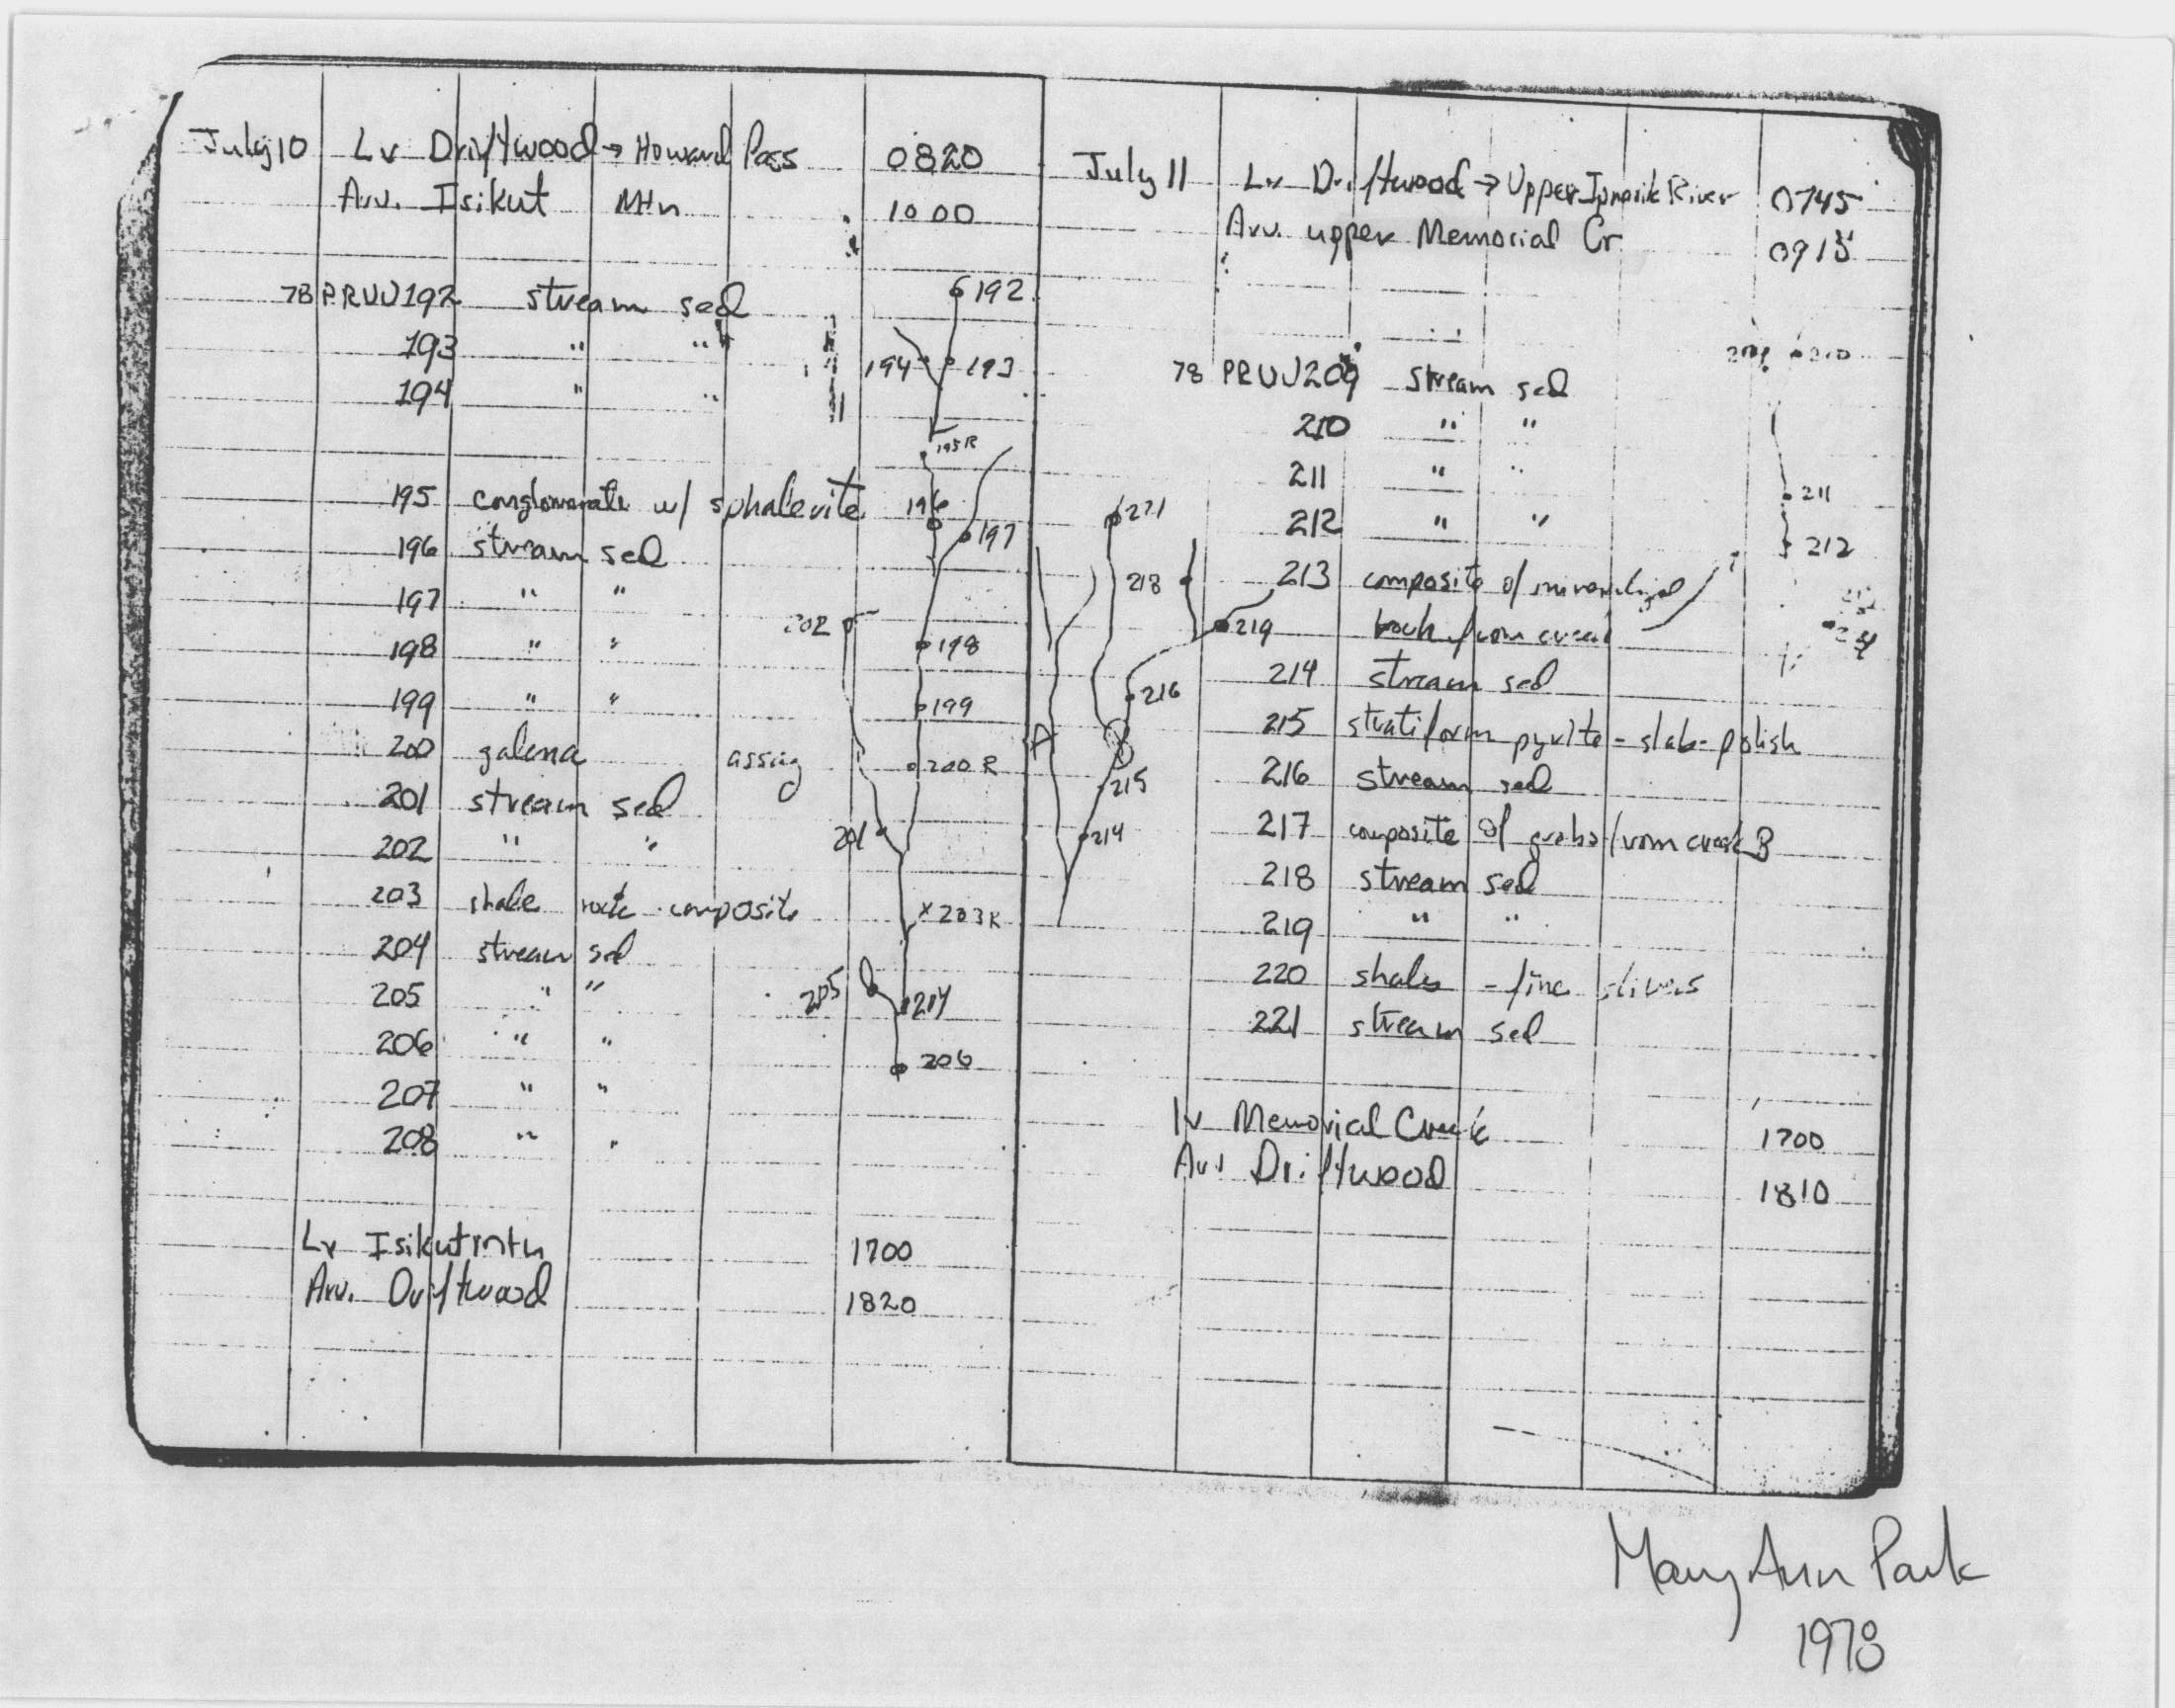 July 10 Lv Driftwood → Howard Pass 0820
Arv. Isikut Mtn 1000
78 PRUU192 stream sed
193 " "
194 " "
195 conglomerate w/ sphalerite
196 stream sed
197 " "
198 " "
199 " "
200 galena assay
201 stream sed
202 " "
203 shale rock composite
204 stream sed
205 " "
206 " "
207 " "
208 " "
Lv Isikut mtn 1700
Arv. Driftwood 1820
192
194 193
195R
196
197
202
198
199
200R
201
203R
205 204
206
July 11 Lv Driftwood → Upper Ipnavik River 0745
Arv. upper Memorial Cr. 0915
78 PRUU209 stream sed
210 " "
211 " "
212 " "
213 composite of mineralized
rock from creek
214 stream sed
215 stratiform pyrite - slab - polish
216 stream sed
217 composite of grabs from creek B
218 stream sed
219 " "
220 shales - fine slivers
221 stream sed
lv Memorial Creek 1700
Arv Driftwood 1810
209 210
211
212
221
218
219
216
A B
215
214
Mary Ann Park
1978